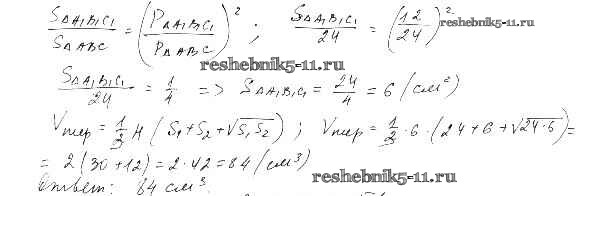 S△A₁B₁C₁ / S△ABC = (P△A₁B₁C₁ / P△ABC)² ; S△A₁B₁C₁ / 24 = (12/24)²
reshebnik5-11.ru.
reshebnik5-11.ru
S△A₁B₁C₁ / 24 = 1/4 => S△A₁B₁C₁ = 24/4 = 6 (см²)
Vпир = 1/3 H (S₁+S₂+√S₁S₂) ; Vпир = 1/3 · 6 · (24+6+√24·6) =
= 2(30+12) = 2·42 = 84 (см³)
Ответ: 84 см³.
reshebnik5-11.ru